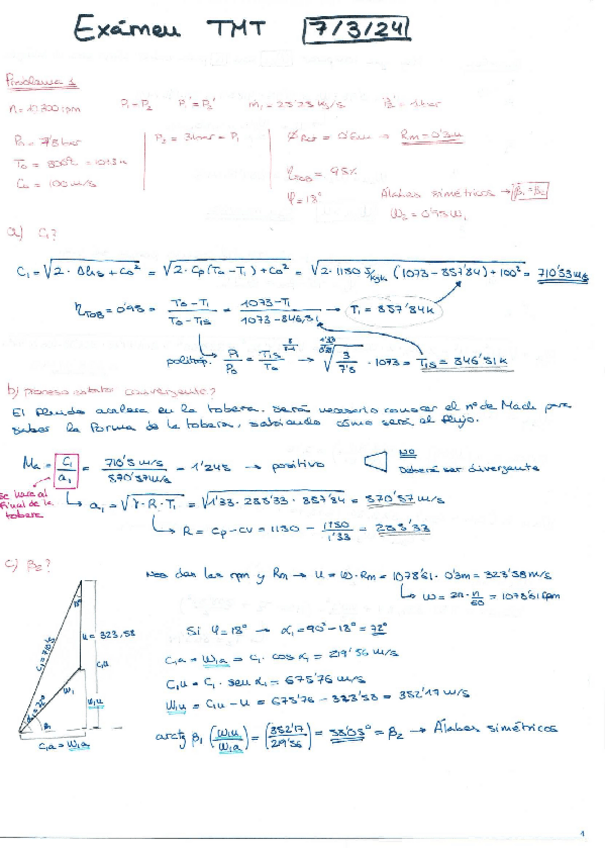 Exámen TMT 7/3/24
Problema 1
n = 10300 rpm P1 = P2 P1' = P2'
P0 = 7'5 bar P2 = 3 bar = P1 Rm = 0'3m
T0 = 800ºC = 1073 K ηTOB = 95%
C0 = 100 m/s φ = 18° Álabes simétricos → β1 = β2
W2 = 0'95 W1
a) C1?
C1 = √2·Δhs + C0² = √2·Cp(T0-T1) + C0² = √2·1150 J/kgK (1073 - 857'84) + 100² = 710'53 m/s
ηTOB = 0'95 = T0-T1 / T0-T1s = 1073-T1 / 1073-846,51 → T1 = 857'84 K
politróp. P1/P0 = T1s/T0 → √3/7'5 · 1073 = T1s = 846'51 K
b) proceso estator convergente?
El fluido acelera en la tobera. Será necesario conocer el nº de Mach para
saber la forma de la tobera, sabiendo cómo será el flujo.
Ma = C1/a1 = 710'5 m/s / 570'57 m/s = 1'245 → positivo NO
Deberá ser divergente
se hace al
final de la
tobera
a1 = √γ·R·T1 = √1'33·285'33·857'84 = 570'57 m/s
R = Cp - Cv = 1150 - 1150/1'33 = 285'33
c) β2?
Nos dan las rpm y Rm → u = ω·Rm = 1078'61·0'3m = 323'58 m/s
ω = 2π·n/60 = 1078'61 rpm
Si φ = 18° → α1 = 90° - 18° = 72°
C1a = W1a = C1·cos α1 = 219'56 m/s
C1u = C1·sen α1 = 675'76 m/s
W1u = C1u - u = 675'76 - 323'58 = 352'17 m/s
arctg β1 (W1u/W1a) = (352'17/219'56) = 58'05° = β2 → Álabes simétricos
C1 = 710'5
u = 323,58
C1u
W1
W1u
α1 = 72°
β1
C1a = W1a
1